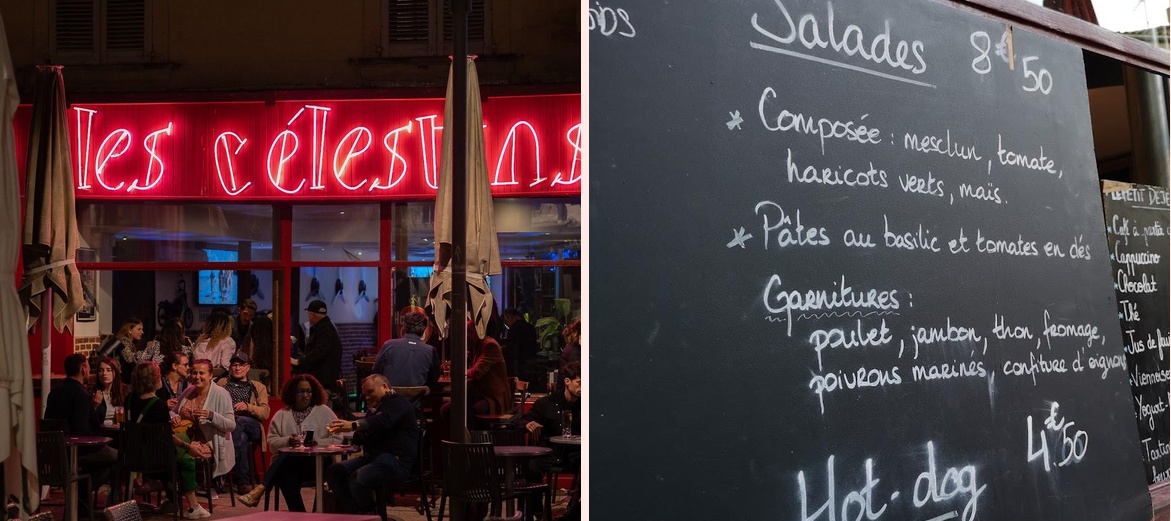 les célestins
Salades 8€50
* Composée : mesclun, tomate,
haricots verts, maïs.
* Pâtes au basilic et tomates en dés
Garnitures :
poulet, jambon, thon, fromage,
poivrons marinés, confiture d'oignons
4€50
Hot-dog
PETIT DEJE
* Café à partir d
* Cappuccino
* Chocolat
* Thé
* Jus de
* Viennoise
* Yogurt
* Tartin